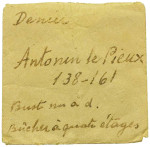 Denier
Antonin le Pieux
138-161
Bust nu à d.
Bûcher à quatr étages